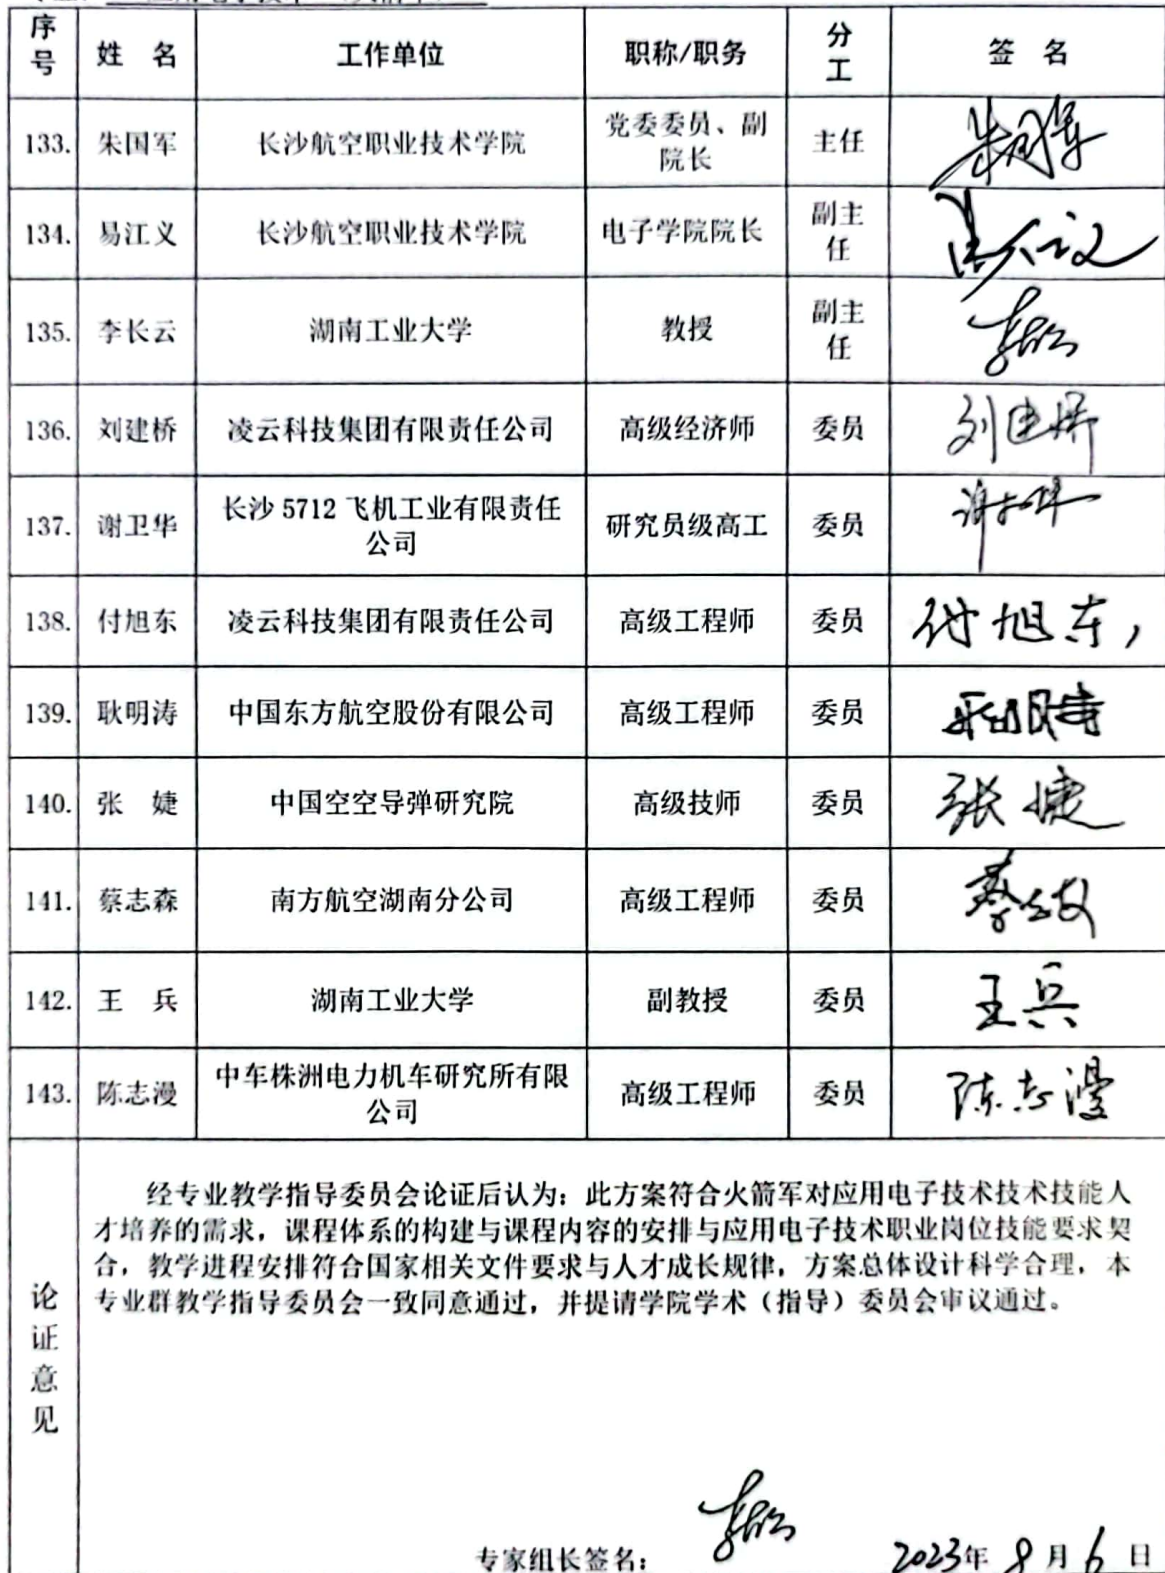 序号 姓 名 工作单位 职称/职务 分工 签 名
133. 朱国军 长沙航空职业技术学院 党委委员、副院长 主任 朱国军
134. 易江义 长沙航空职业技术学院 电子学院院长 副主任
135. 李长云 湖南工业大学 教授 副主任 李长云
136. 刘建桥 凌云科技集团有限责任公司 高级经济师 委员 刘建桥
137. 谢卫华 长沙 5712 飞机工业有限责任公司 研究员级高工 委员 谢卫华
138. 付旭东 凌云科技集团有限责任公司 高级工程师 委员 付旭东
139. 耿明涛 中国东方航空股份有限公司 高级工程师 委员 耿明涛
140. 张 婕 中国空空导弹研究院 高级技师 委员 张婕
141. 蔡志森 南方航空湖南分公司 高级工程师 委员
142. 王 兵 湖南工业大学 副教授 委员 王兵
143. 陈志漫 中车株洲电力机车研究所有限公司 高级工程师 委员 陈志漫
论证意见
经专业教学指导委员会论证后认为：此方案符合火箭军对应用电子技术技术技能人
才培养的需求，课程体系的构建与课程内容的安排与应用电子技术职业岗位技能要求契
合，教学进程安排符合国家相关文件要求与人才成长规律，方案总体设计科学合理，本
专业群教学指导委员会一致同意通过，并提请学院学术（指导）委员会审议通过。
专家组长签名： 李长云 2023年 8 月 6 日